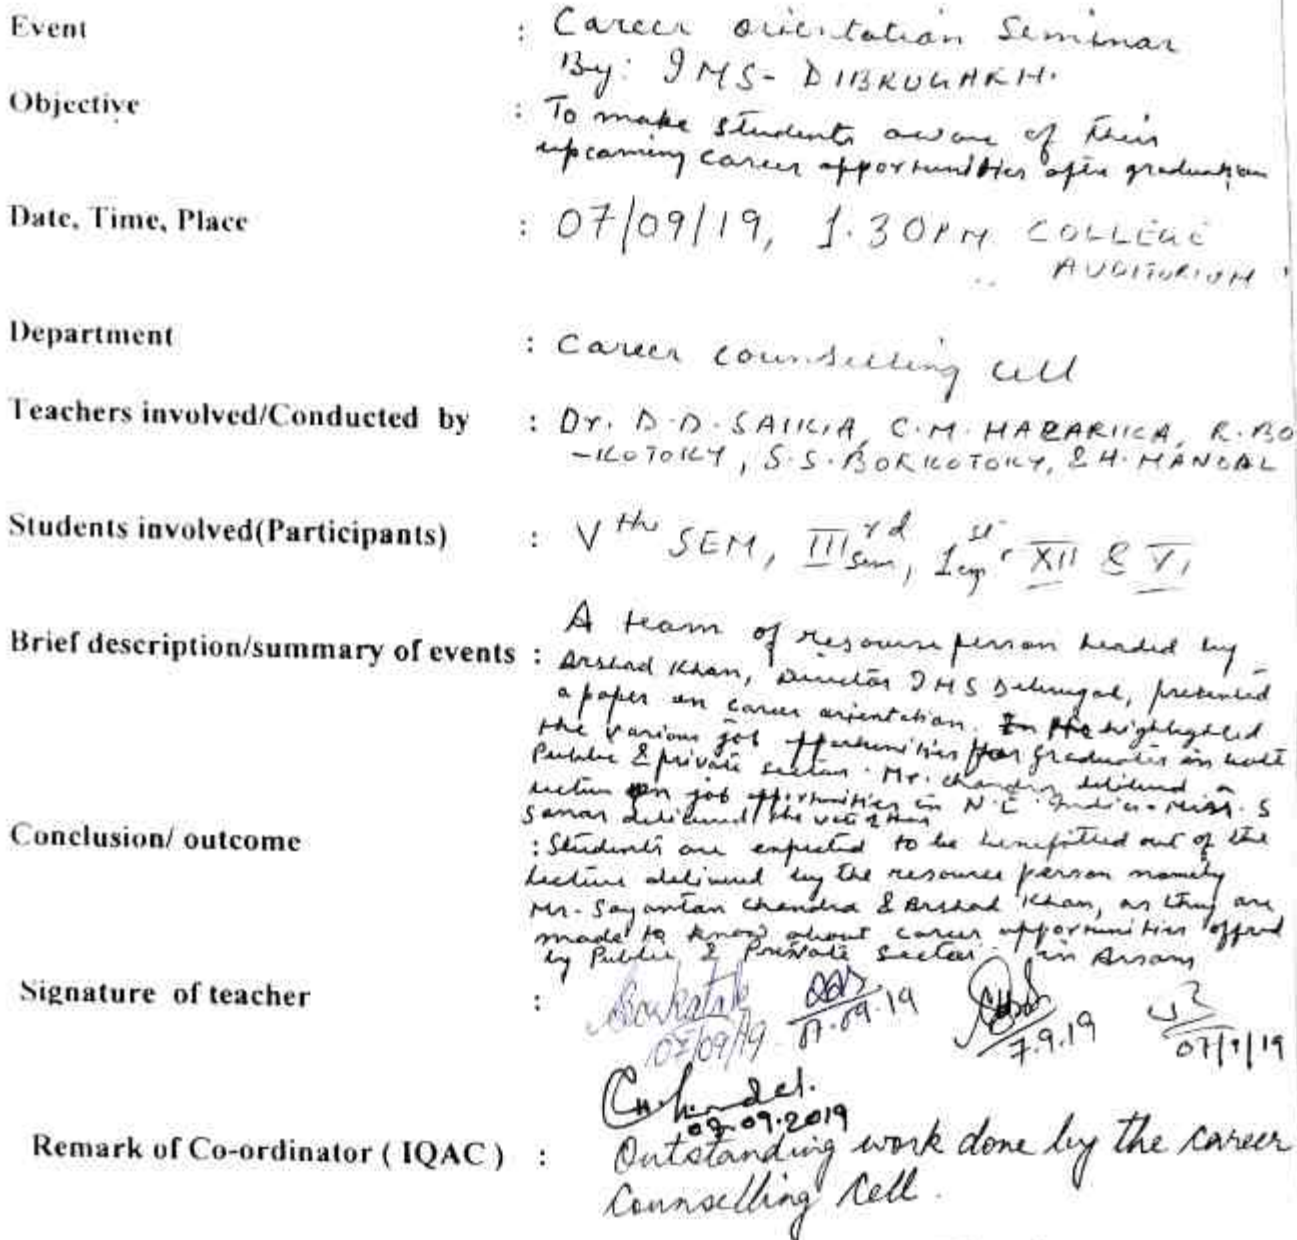 Event : Career orientation Seminar
By: IMS- DIBRUGARH.
Objective : To make students aware of their
upcaming career opportunities after graduation
Date, Time, Place : 07/09/19, 1.30PM COLLEGE
AUDITORIUM
Department : Career counselling cell
Teachers involved/Conducted by : Dr. D.D. SAIKIA, C.M. HAZARIKA, R. BO
-KOTOKY, S.S. BORKOTOKY, & H. MANDAL
Students involved(Participants) : Vth SEM, IIIrd Sem, 1st XII & VI
Brief description/summary of events : A team of resourse person headed by
Arshad Khan, Director IMS Dibrugarh, presented
a paper on career orientation. He highlighted
the various job opportunities for graduates in both
Public & private sector. Mr. Chandra delivered a
lecture on job opportunities in N.E. India. Miss. S
delivered the
Conclusion/ outcome : Students are expected to be benefitted out of the
lecture delivered by the resource person namely
Mr. Sayantan Chandra & Arshad Khan, as they are
made to know about career opportunities offered
by Public & Private Sector in Assam
Signature of teacher :
07/09/19 07.09.19 7.9.19 07/9/19
09.2019
Remark of Co-ordinator ( IQAC ) : Outstanding work done by the career
Counselling Cell.